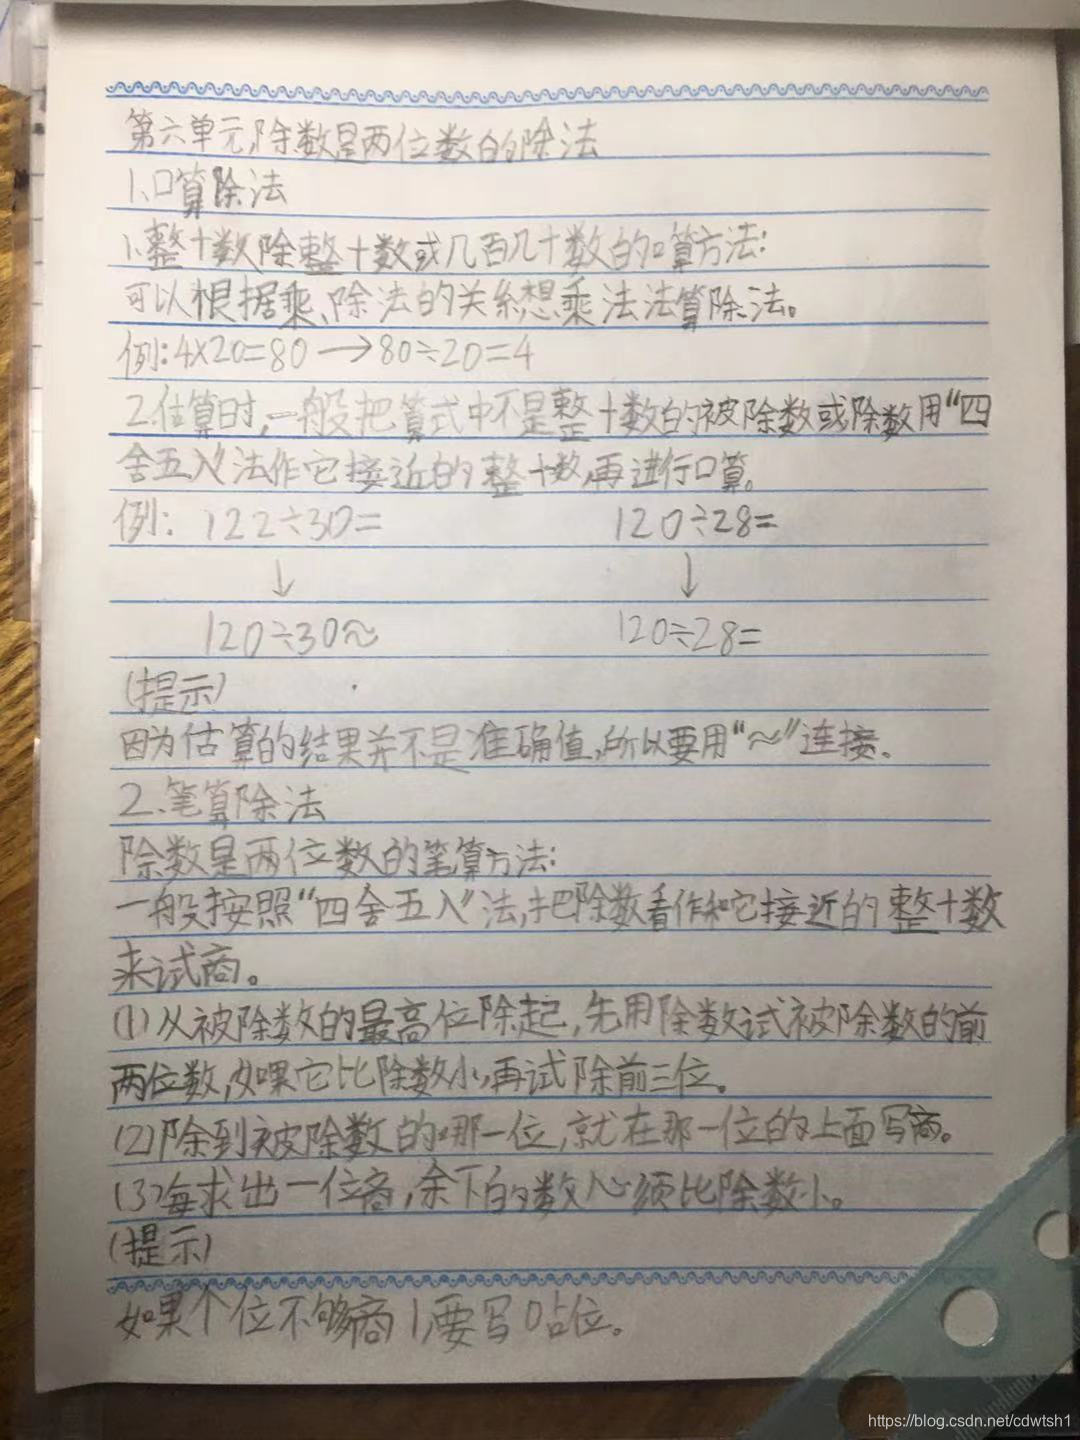 第六单元,除数是两位数的除法
1、口算除法
1.整十数除整十数或几百几十数的口算方法:
可以根据乘、除法的关系想乘法法算除法。
例:4×20=80→80÷20=4
2.估算时,一般把算式中不是整十数的被除数或除数用“四
舍五入”法作它接近的整十数,再进行口算。
例: 122÷30= 120÷28=
↓ ↓
120÷30≈ 120÷28=
(提示)
因为估算的结果并不是准确值,所以要用“≈”连接。
2.笔算除法
除数是两位数的笔算方法:
一般按照“四舍五入”法,把除数看作和它接近的整十数
来试商。
(1)从被除数的最高位除起,先用除数试被除数的前
两位数,如果它比除数小,再试除前三位。
(2)除到被除数的哪一位,就在那一位的上面写商。
(3)每求出一位商,余下的数必须比除数小。
(提示)
如果个位不够商1,要写0占位。
https://blog.csdn.net/cdwtsh1